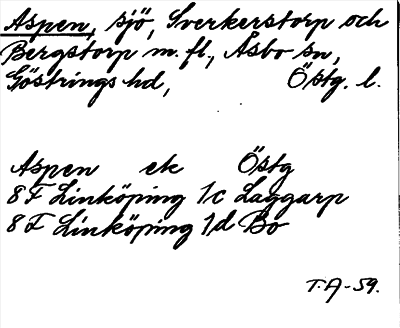 Aspen, sjö, Sverkerstorp och
Bergstorp m. fl., Åsbo sn,
Göstrings hd, Östg. l.
Aspen ek Östg
8 F Linköping 1c Laggarp
8 F Linköping 1d Bo
T.A-59.